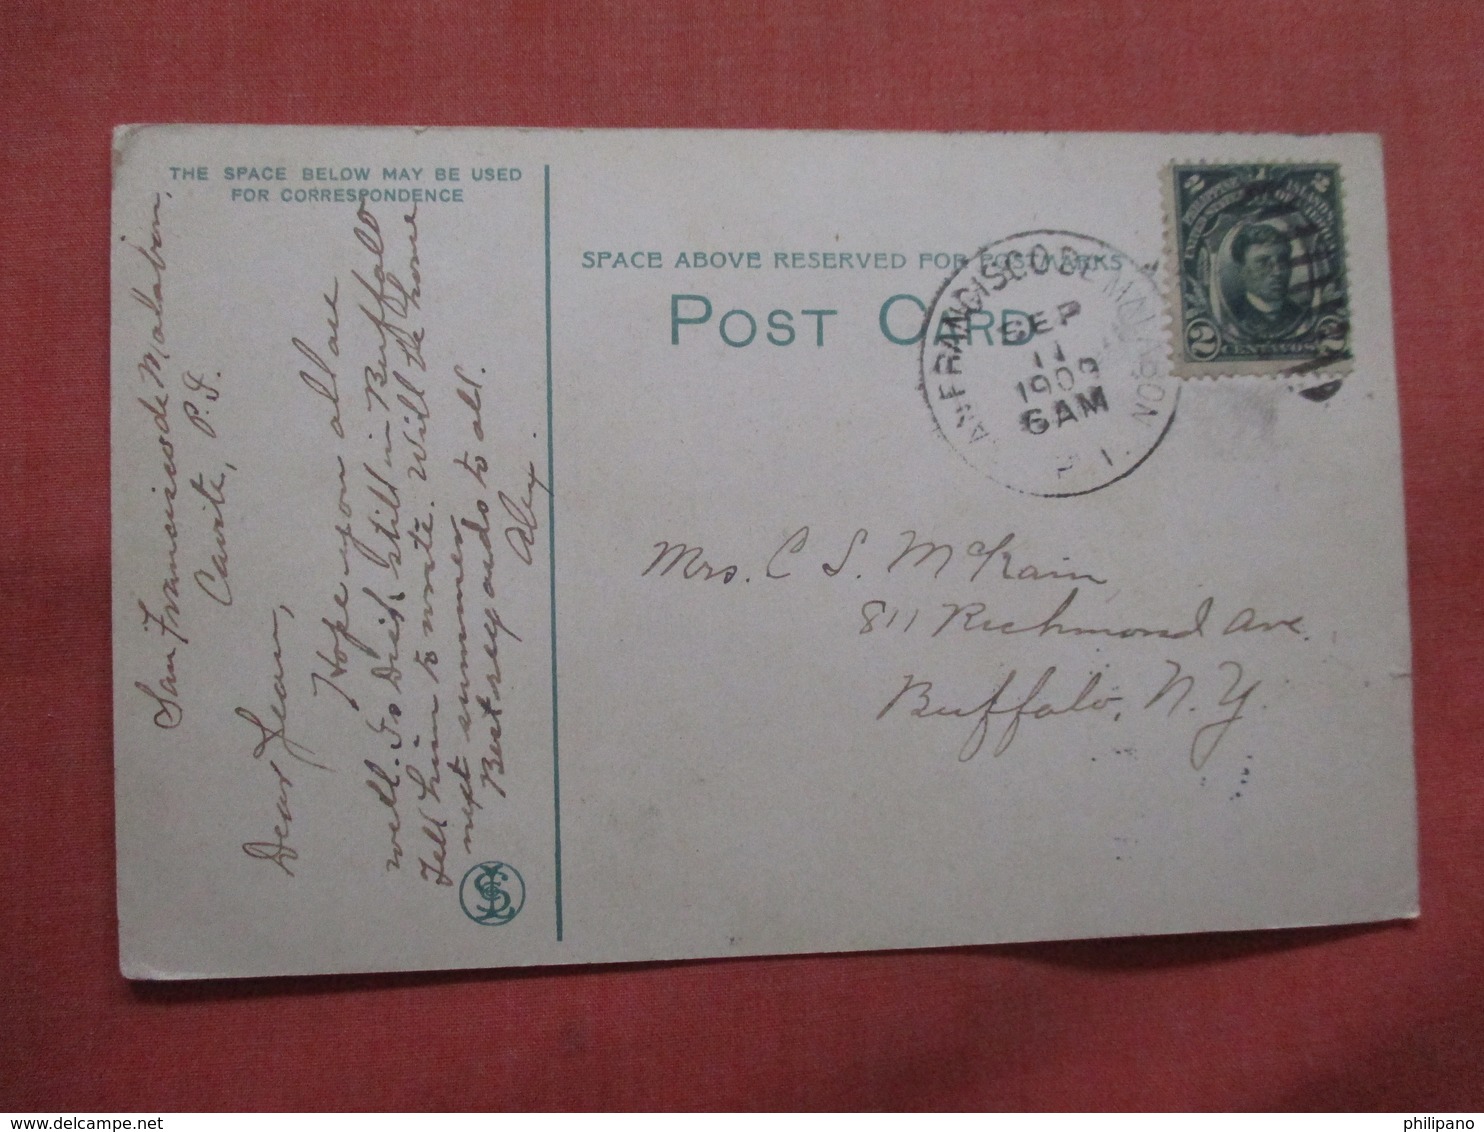 THE SPACE BELOW MAY BE USED
FOR CORRESPONDENCE
San Francisco de Malabon,
Cavite, P.I.
Dear Jean,
Hope you all are
well. Is Dick still in Buffalo
Tell him to write. Will be home
next summer.
Best regards to all.
Alex.
SPACE ABOVE RESERVED FOR POSTMARKS
POST CARD
SAN FRANCISCO DE MALABON
SEP
11
1909
6AM
P.I.
2 1 2
PHILIPPINE ISLANDS
2 CENTAVOS 2
Mrs. C S. McKain
811 Richmond Ave.
Buffalo, N.Y.
www.delcampe.net
philipano